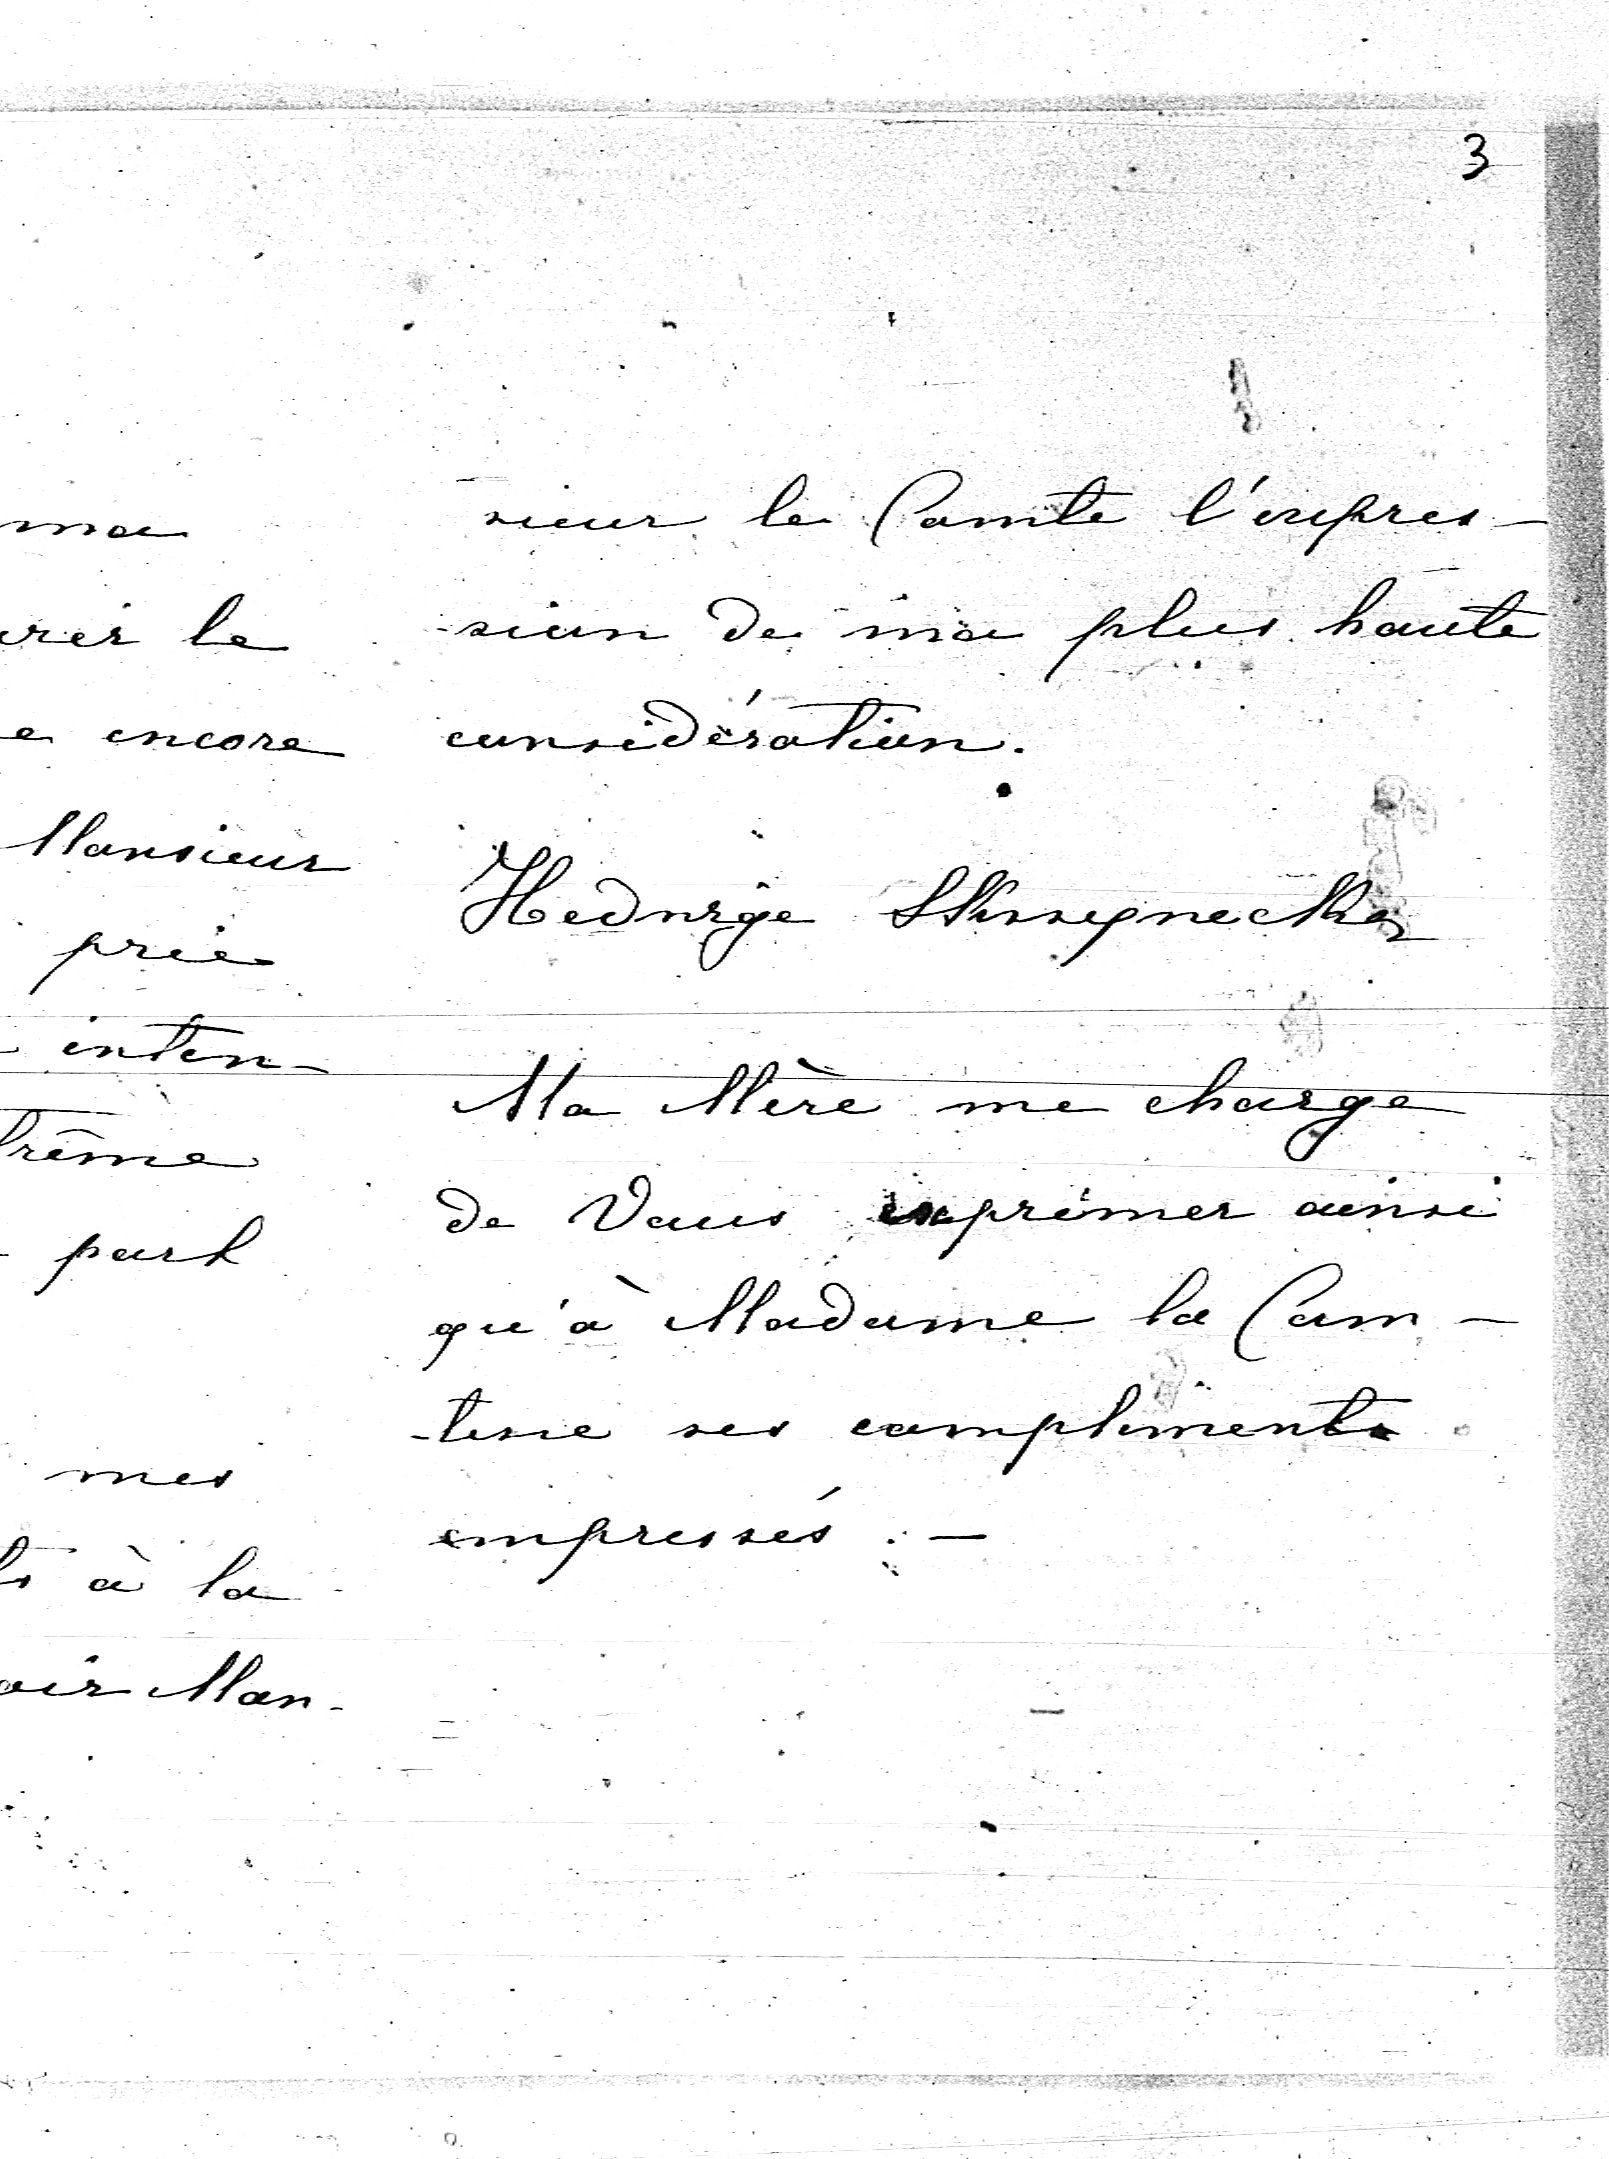 3
ma
rer le
e encore
Monsieur
prie
inten-
trême
part
mes
ts à la
oir Mon-
sieur le Comte l'expres-
-sion de ma plus haute
considération.
Hedwige Skrzynecka
Ma Mère me charge
de Vous exprimer ainsi
qu'à Madame la Com-
-tesse ses compliments
empressés. -